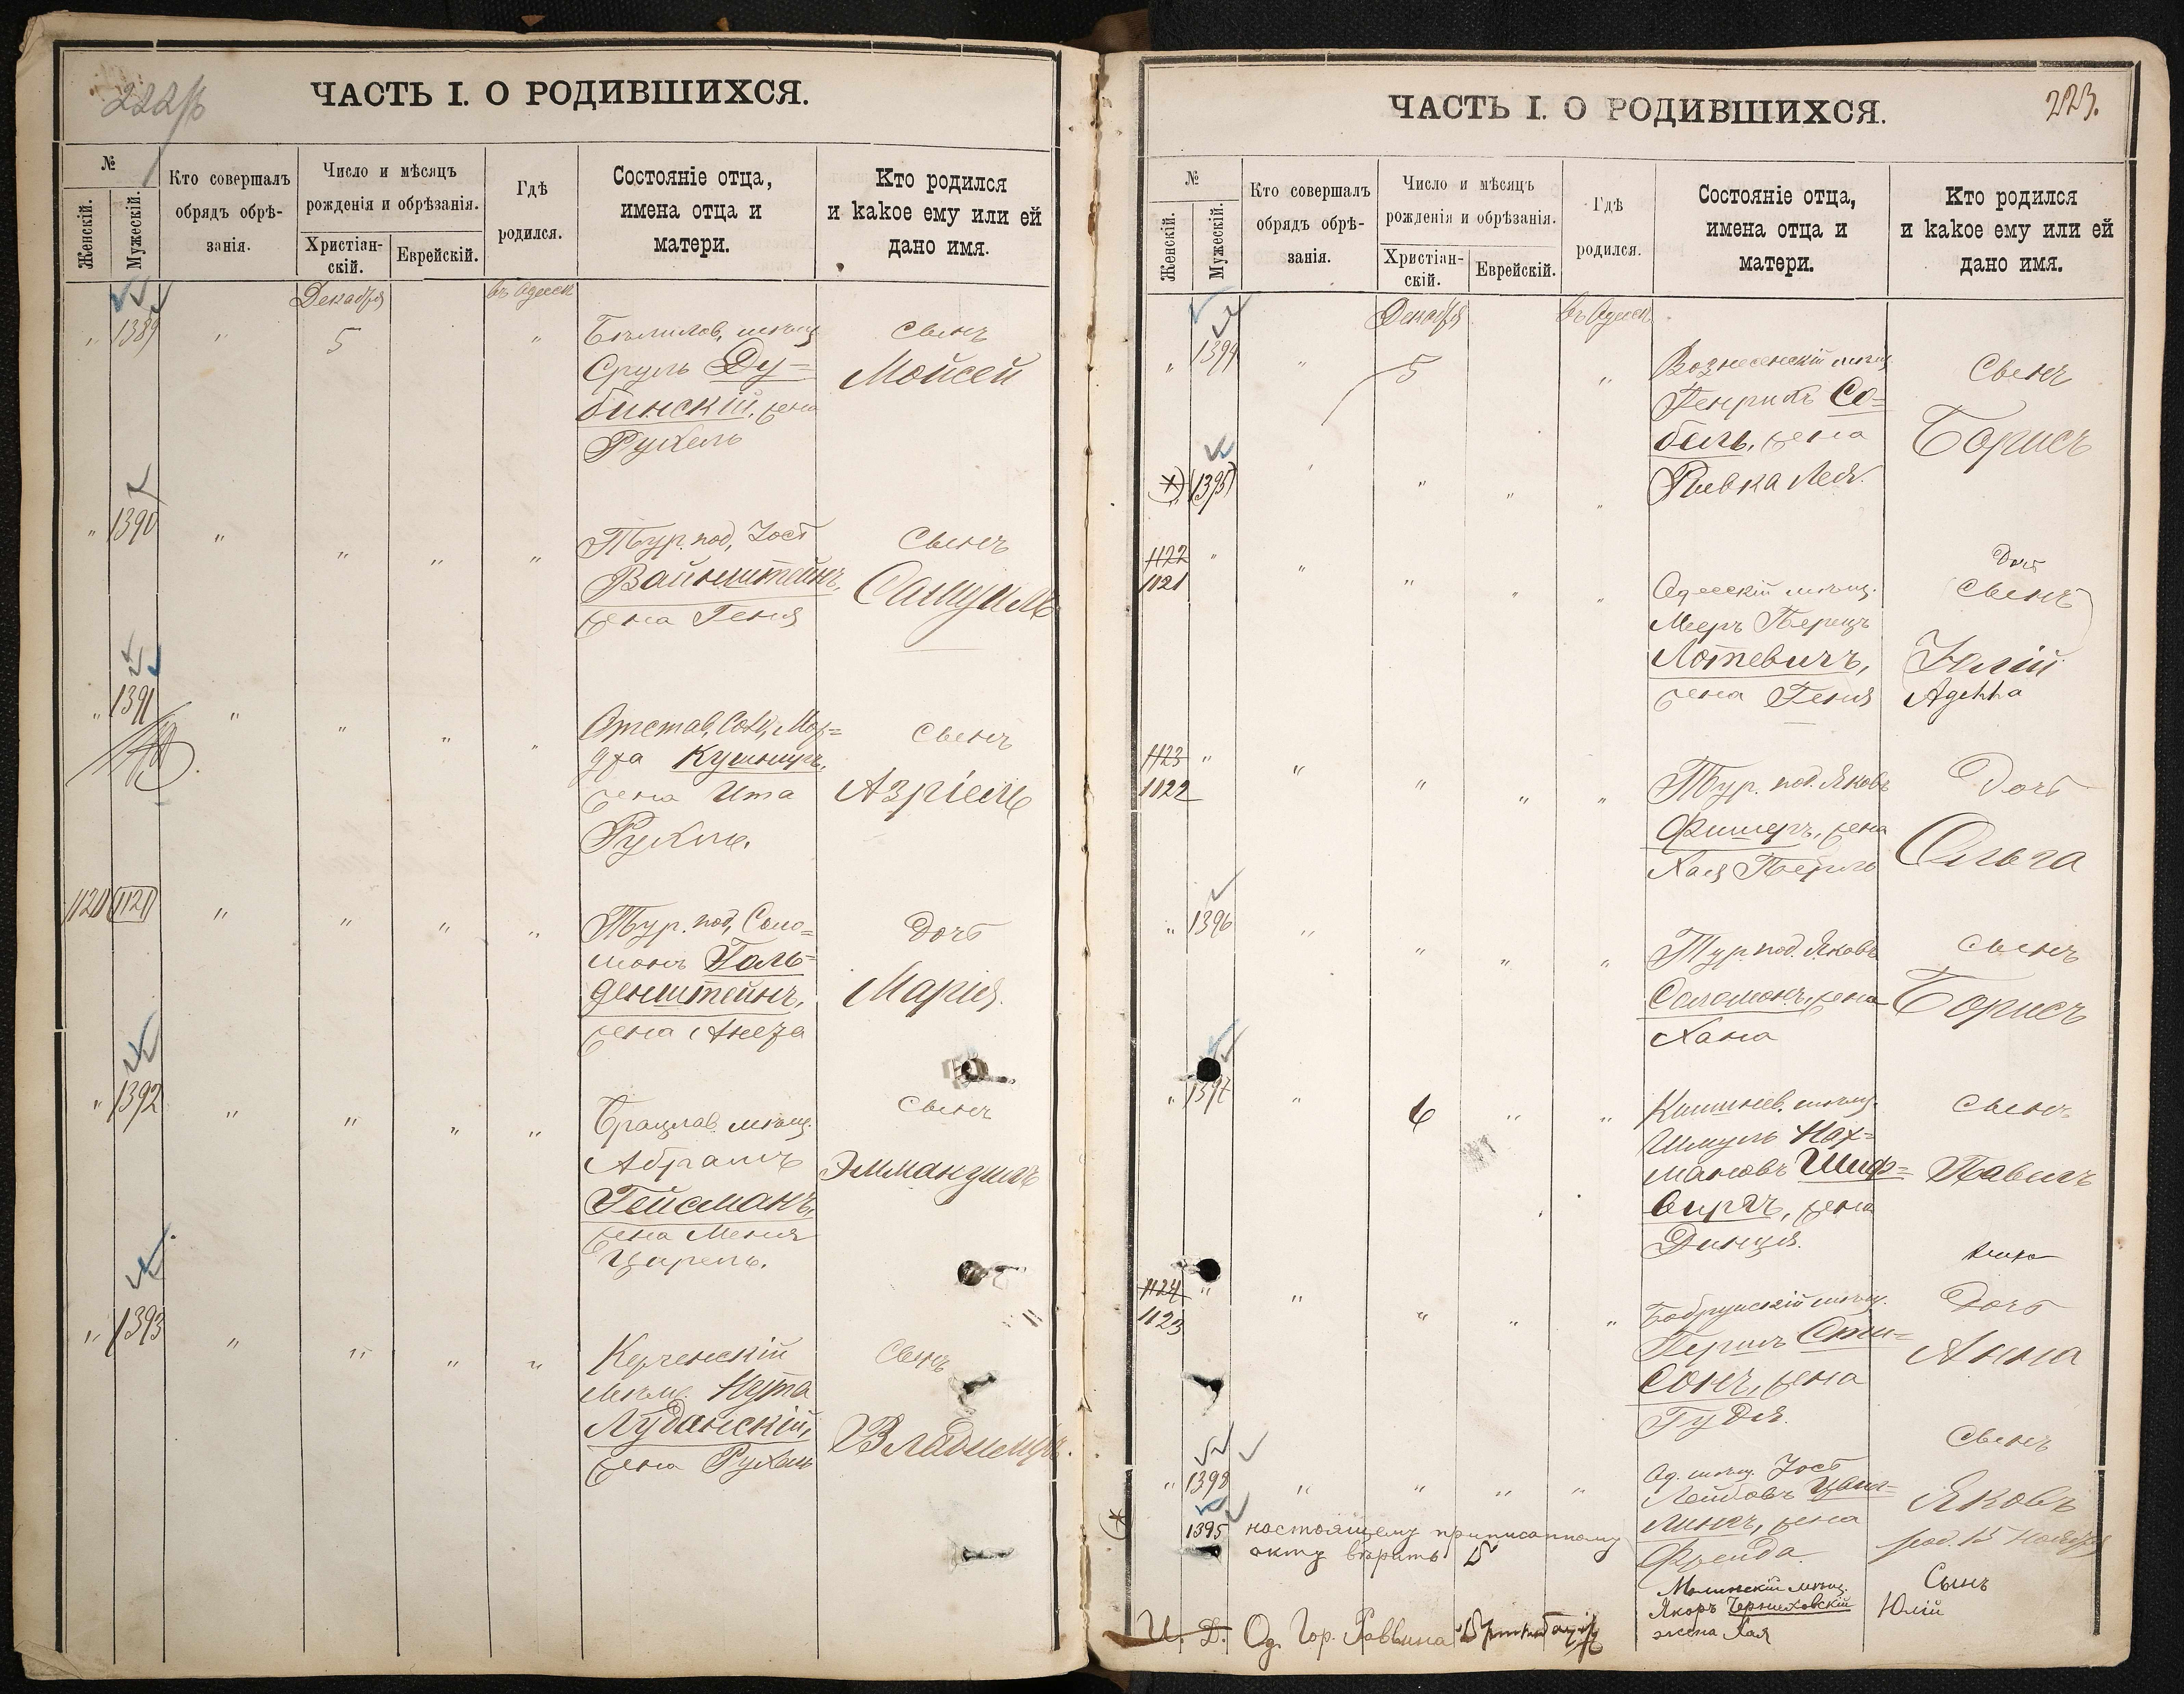 ЧАСТЬ I. О РОДИВШИХСЯ.
№
Женскій.
Мужескій.
Кто совершалъ
обрядъ обрѣ-
занія.
Число и мѣсяцъ
рожденія и обрѣзанія.
Христіан-
скій.
Еврейскій.
Гдѣ
родился.
Состояніе отца,
имена отца и
матери.
Кто родился
и какое ему или ей
дано имя.
Декабря
въ Одессѣ
" 1389 " 5 "
мѣщ.
Сруль Ду=
бинскій, жена
Рухель
Сынъ
Мойсей
" 1390 " " " "
Тур. под, Іосъ
Вайнштейнъ,
жена Геня
Сынъ
Самуилъ
" 1391 " " " "
Отстав, Сол, Мор=
дха Кушниръ,
жена Ита
Рухль.
Сынъ
Азріель
1120 1121 " " " "
Тур. под, Соло=
монъ Голь=
денштейнъ,
жена
Дочь
Марія.
" 1392 " " " "
Брацлав. мѣщ.
Абрамъ
Гейсманъ,
жена Меня
Царель.
Сынъ
Эммануилъ
" 1393 " " " "
Керченскій
мѣщ. Нута
Луданскій,
жена Рухель
Сынъ
Владимиръ.
ЧАСТЬ I. О РОДИВШИХСЯ.
223.
№
Женскій.
Мужескій.
Кто совершалъ
обрядъ обрѣ-
занія.
Число и мѣсяцъ
рожденія и обрѣзанія.
Христіан-
скій.
Еврейскій.
Гдѣ
родился.
Состояніе отца,
имена отца и
матери.
Кто родился
и какое ему или ей
дано имя.
Декабря
въ Одессѣ
" 1394 " 5 "
Вознесенскій мѣщ.
Генрихъ Со=
бель, жена
Ривка Лея.
Сынъ
Борисъ
1395 " " " "
1122 "
1121 " " " "
Одесскій мѣщ.
Мееръ Перецъ
Лотевичъ,
жена Геня
Дочь
Сынъ
Юлій
Аделла
1123 "
1122 " " " "
Тур. под. Яковъ
Фишеръ, жена
Хая Перль
Дочь
Ольга
" 1396 " " " "
Тур. под. Яковъ
Соломонъ, жена
Хана
Сынъ
Борисъ
" 1397 " 6 " "
Кишинев. мѣщ.
Шмуль Нах=
мановъ Шиф=
виргъ, жена
Динція.
Сынъ
Павелъ
1124 "
1123 " " " "
Бобруйскій мѣщ.
Гершъ
сонъ, жена
Гудля.
Дочь
Анна
" 1398 " " " "
Од. мѣщ. Іосъ
Лейбовъ
линъ, жена
Фрейда.
Сынъ
Яковъ
род. 15 Ноября
1395 настоящему приписанному
акту вѣрить
мѣщ.
Черниховскій
жена Хая
Сынъ
Юлій
И. Д. Од. Гор. Раввина